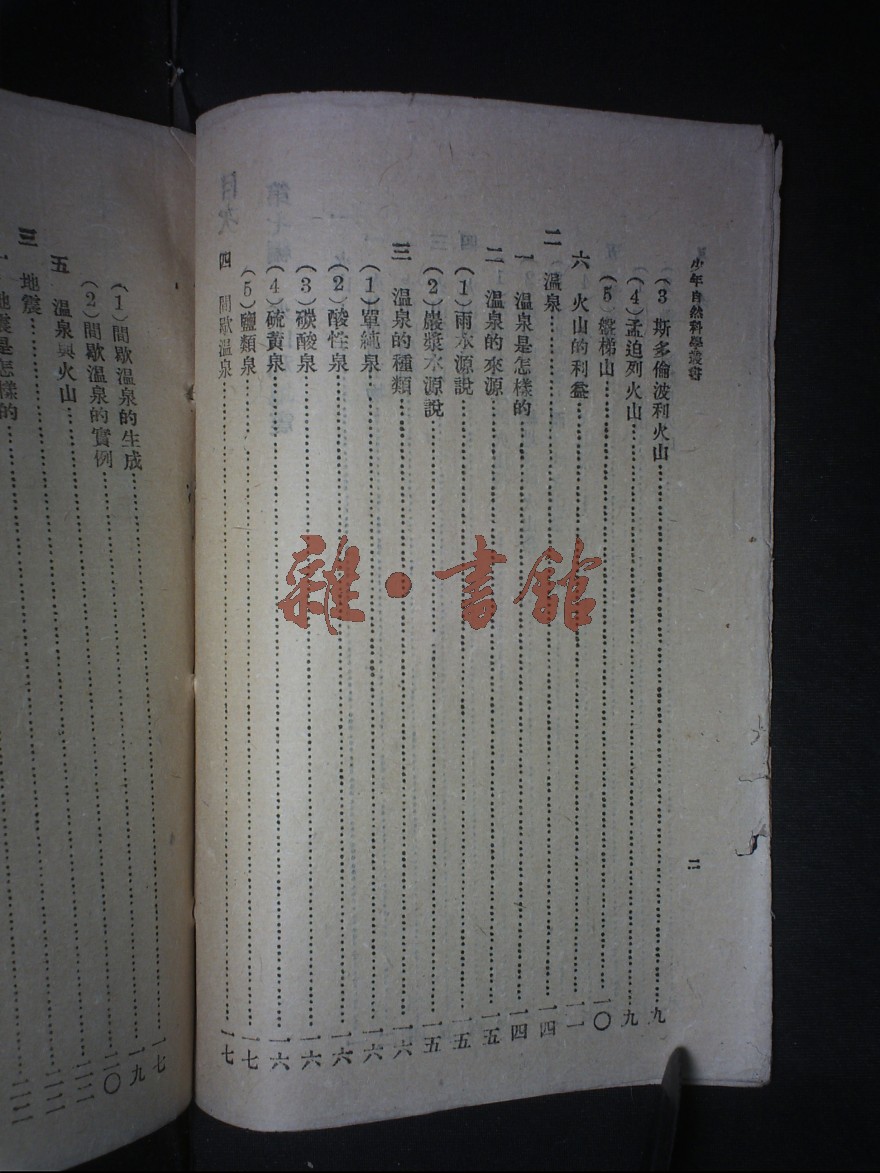 少年自然科學叢書
二
(3)斯多倫波利火山……九
(4)孟迫列火山……九
(5)磐梯山……一〇
六 火山的利益……一一
二 溫泉……一四
一 溫泉是怎樣的……一四
二 溫泉的來源……一五
(1)雨水源說……一五
(2)巖漿水源說……一五
三 溫泉的種類……一六
(1)單純泉……一六
(2)酸性泉……一六
(3)碳酸泉……一六
(4)硫黃泉……一六
(5)鹽類泉……一七
四 間歇溫泉……一七
(1)間歇溫泉的生成……一七
(2)間歇溫泉的實例……一九
五 溫泉與火山……二〇
三 地震……
一 地震是怎樣的
雜·書館